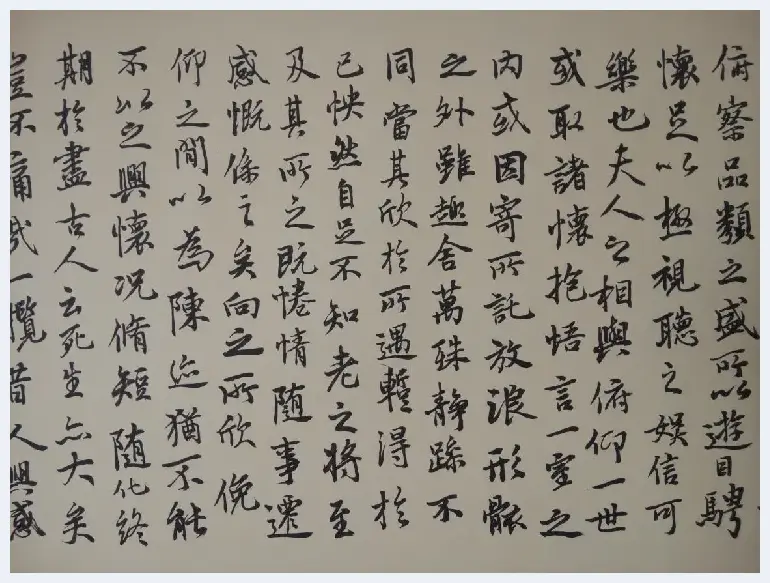 俯察品類之盛所以遊目騁
懷足以極視聽之娛信可
樂也夫人之相與俯仰一世
或取諸懷抱悟言一室之
內或因寄所託放浪形骸
之外雖趣舍萬殊靜躁不
同當其欣於所遇暫得於
己怏然自足不知老之將至
及其所之既惓情隨事遷
感慨係之矣向之所欣俛
仰之閒以為陳迹猶不能
不以之興懷況脩短隨化終
期於盡古人云死生亦大矣
豈不痛哉一攬昔人興感